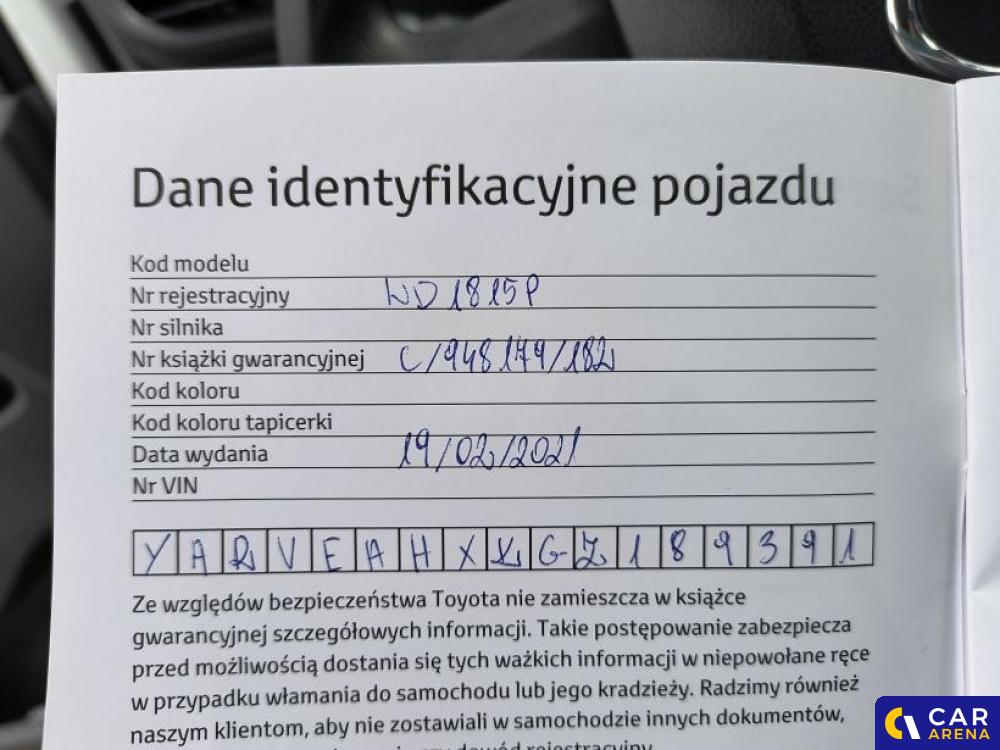 Dane identyfikacyjne pojazdu
Kod modelu
Nr rejestracyjny WD1815P
Nr silnika
Nr książki gwarancyjnej C/948179/182
Kod koloru
Kod koloru tapicerki
Data wydania 19/02/2021
Nr VIN
YARVEAHXKGZ189391
Ze względów bezpieczeństwa Toyota nie zamieszcza w książce
gwarancyjnej szczegółowych informacji. Takie postępowanie zabezpiecza
przed możliwością dostania się tych ważkich informacji w niepowołane ręce
w przypadku włamania do samochodu lub jego kradzieży. Radzimy również
naszym klientom, aby nie zostawiali w samochodzie innych dokumentów,
dowód rejestracyjny
CAR
ARENA